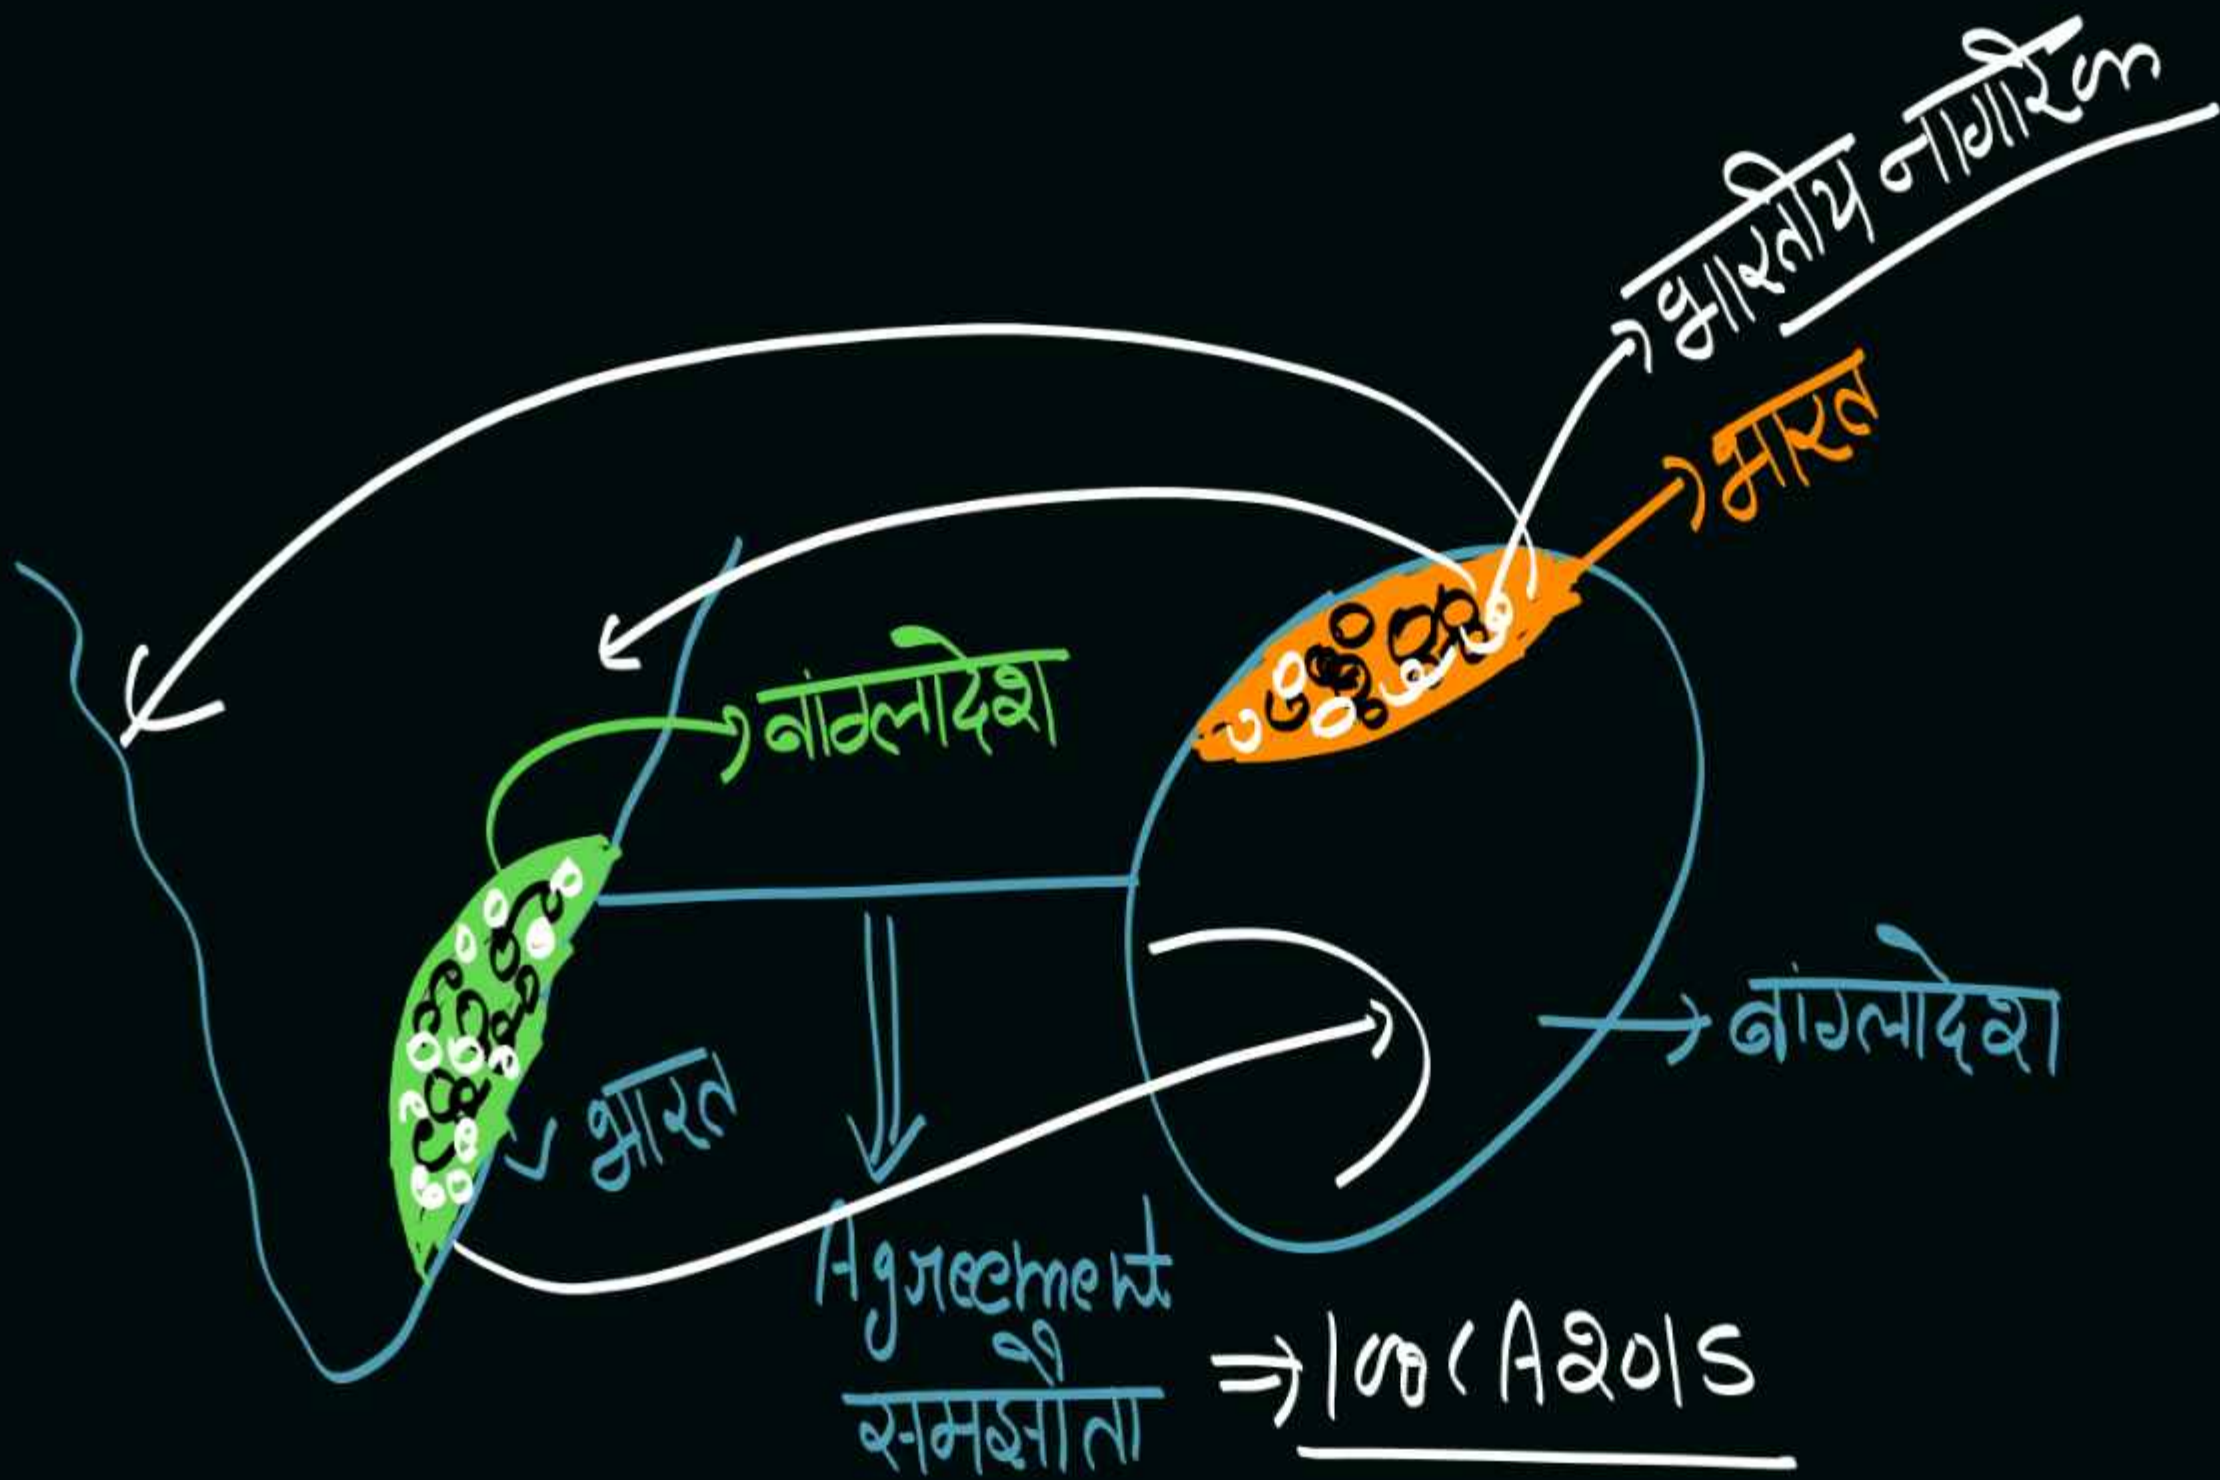 भारतीय नागरिक
भारत
बांग्लादेश
बांग्लादेश
भारत
Agreement
समझौता
⇒ 100 CA 2015